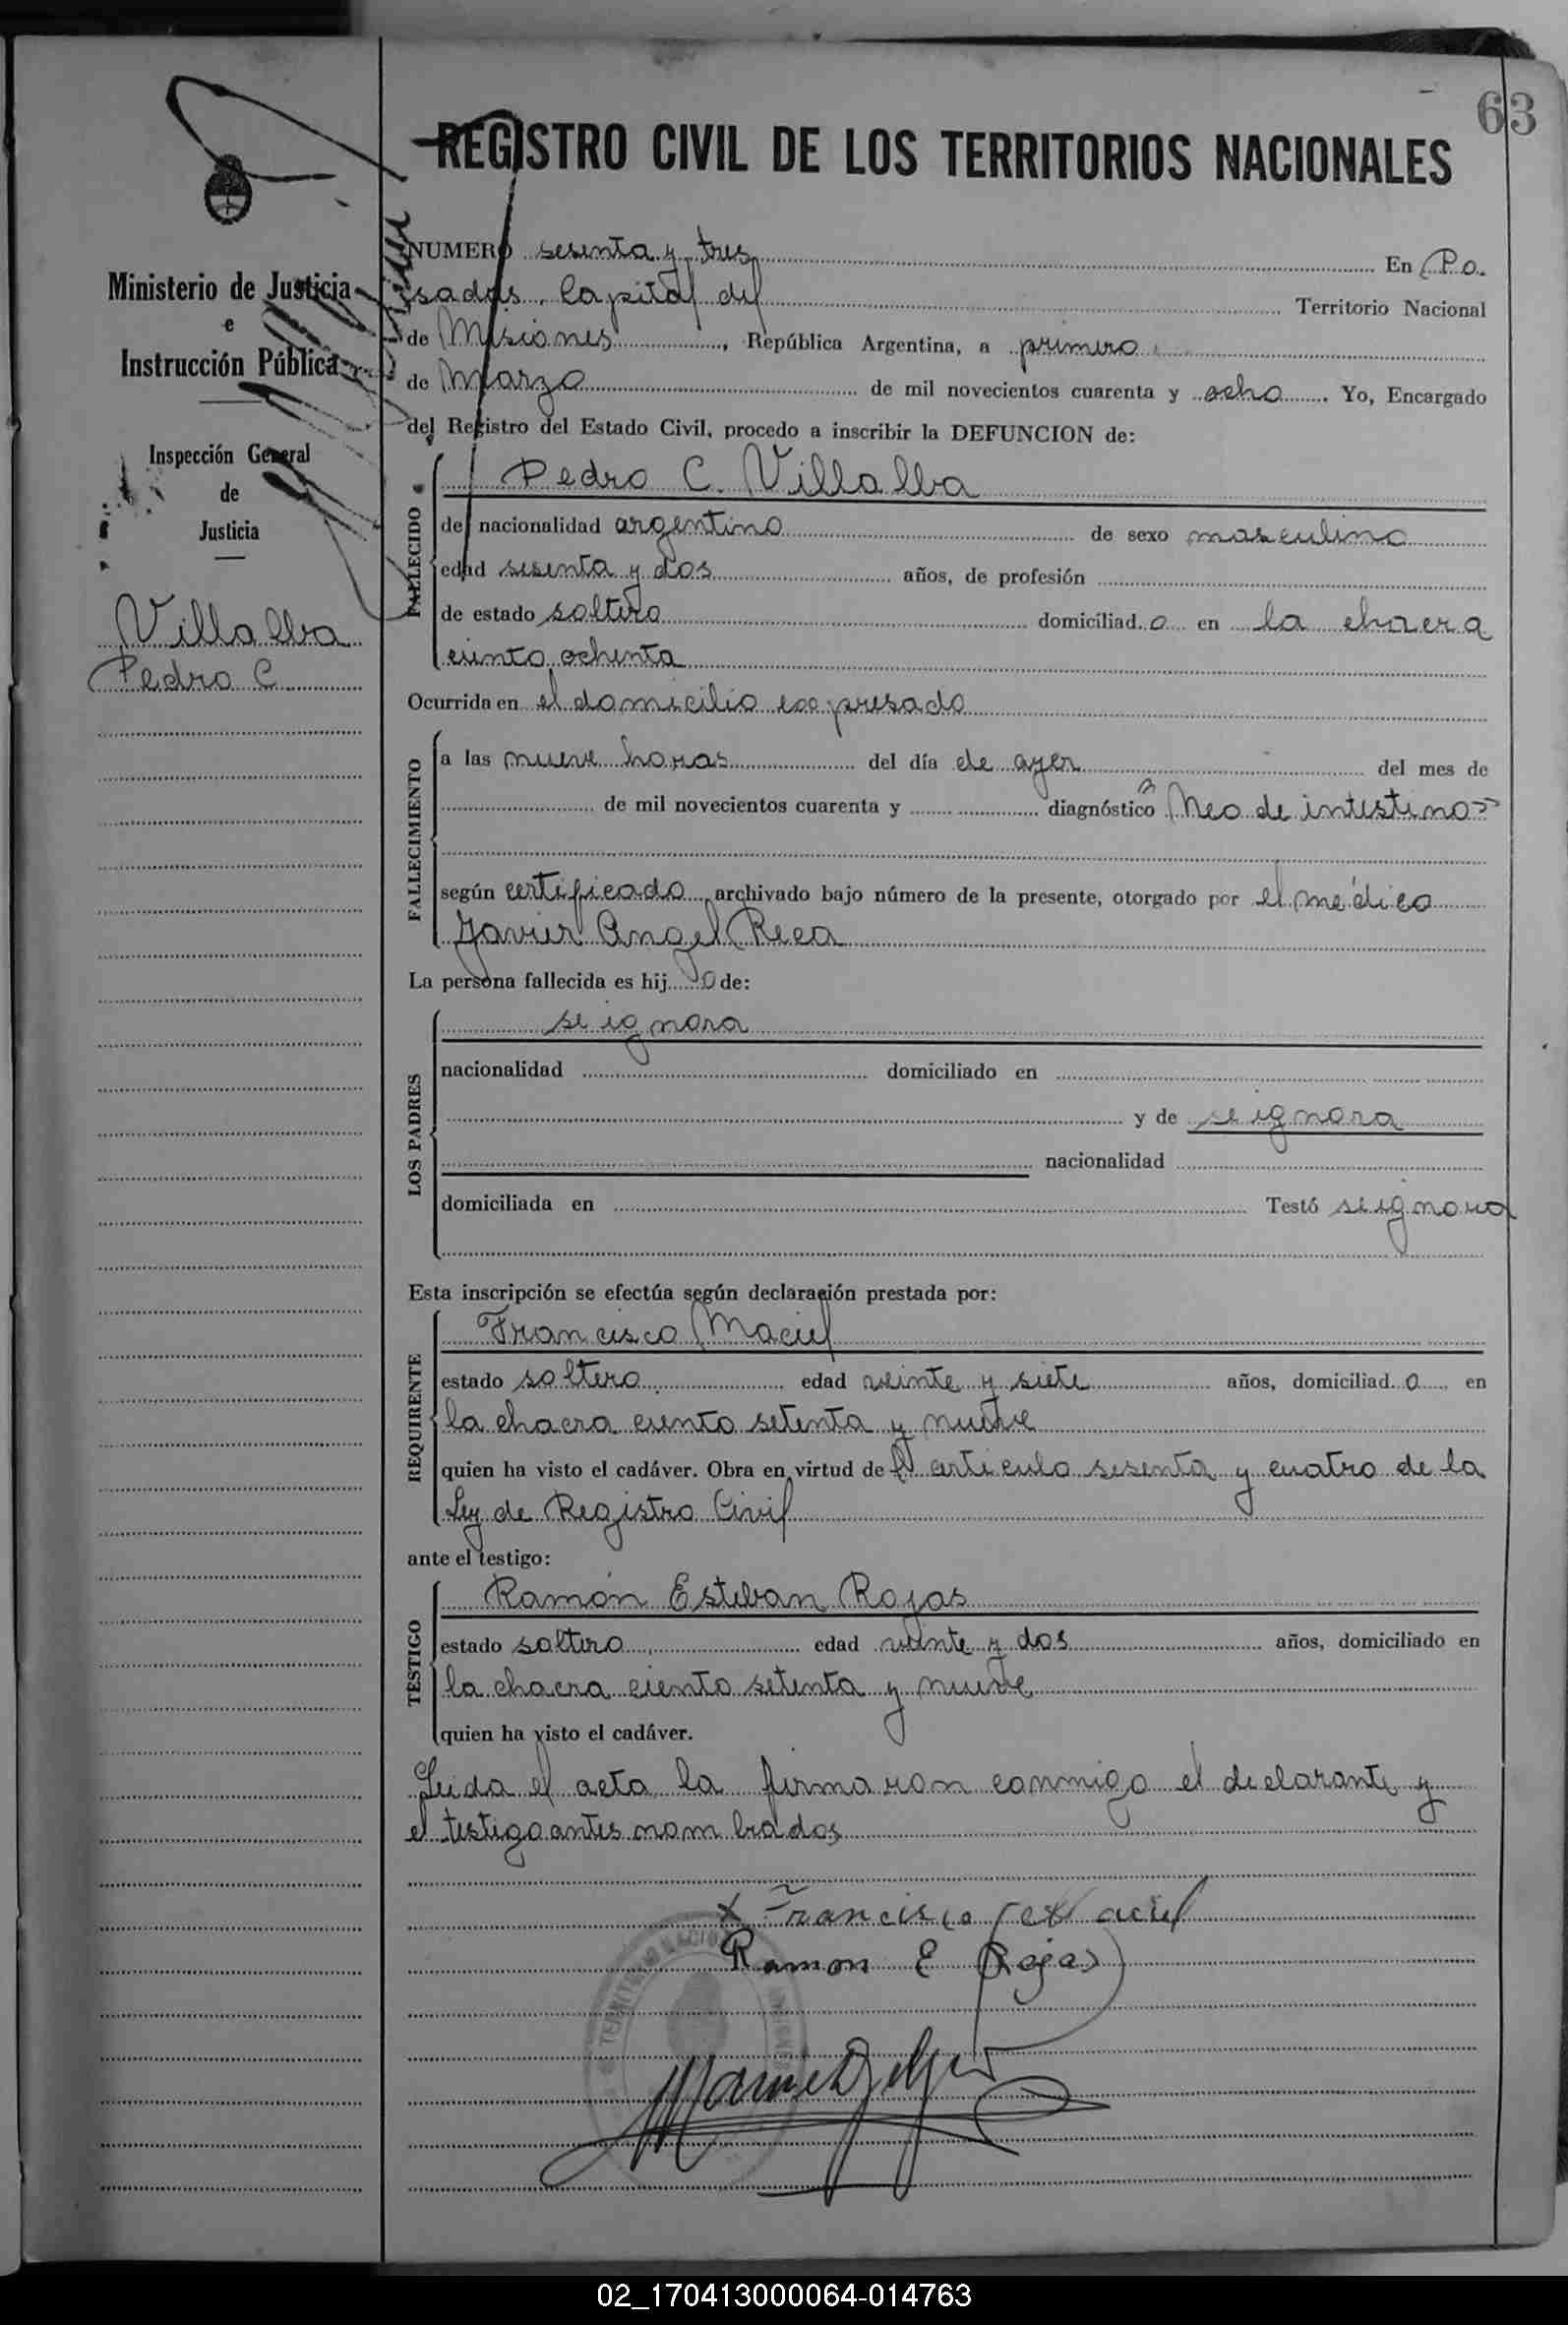 63
REGISTRO CIVIL DE LOS TERRITORIOS NACIONALES
Ministerio de Justicia
e
Instrucción Pública
Inspección General
de
Justicia
Villalba
Pedro C
NUMERO sesenta y tres En Po.
sadas, Capital del Territorio Nacional
de Misiones, República Argentina, a primero
de Marzo de mil novecientos cuarenta y ocho. Yo, Encargado
del Registro del Estado Civil, procedo a inscribir la DEFUNCION de:
FALLECIDO
Pedro C. Villalba
de nacionalidad argentino de sexo masculino
edad sesenta y dos años, de profesión
de estado soltero domiciliado en la chacra
ciento ochenta
Ocurrida en el domicilio expresado
FALLECIMIENTO
a las nueve horas del día de ayer del mes de
de mil novecientos cuarenta y diagnóstico Neo de intestino=
según certificado archivado bajo número de la presente, otorgado por el médico
Javier Angel Reca
La persona fallecida es hijo de:
LOS PADRES
se ignora
nacionalidad domiciliado en
y de se ignora
nacionalidad
domiciliada en Testó se ignora
Esta inscripción se efectúa según declaración prestada por:
REQUIRENTE
Francisco Maciel
estado soltero edad veinte y siete años, domiciliado en
la chacra ciento setenta y nueve
quien ha visto el cadáver. Obra en virtud del articulo sesenta y cuatro de la
Ley de Registro Civil
ante el testigo:
TESTIGO
Ramón Esteban Rojas
estado soltero edad veinte y dos años, domiciliado en
la chacra ciento setenta y nueve
quien ha visto el cadáver.
Leida el acta la firmaron conmigo el declarante y
el testigo antes nombrados
x Francisco Maciel
Ramon E Rojas
02_170413000064-014763